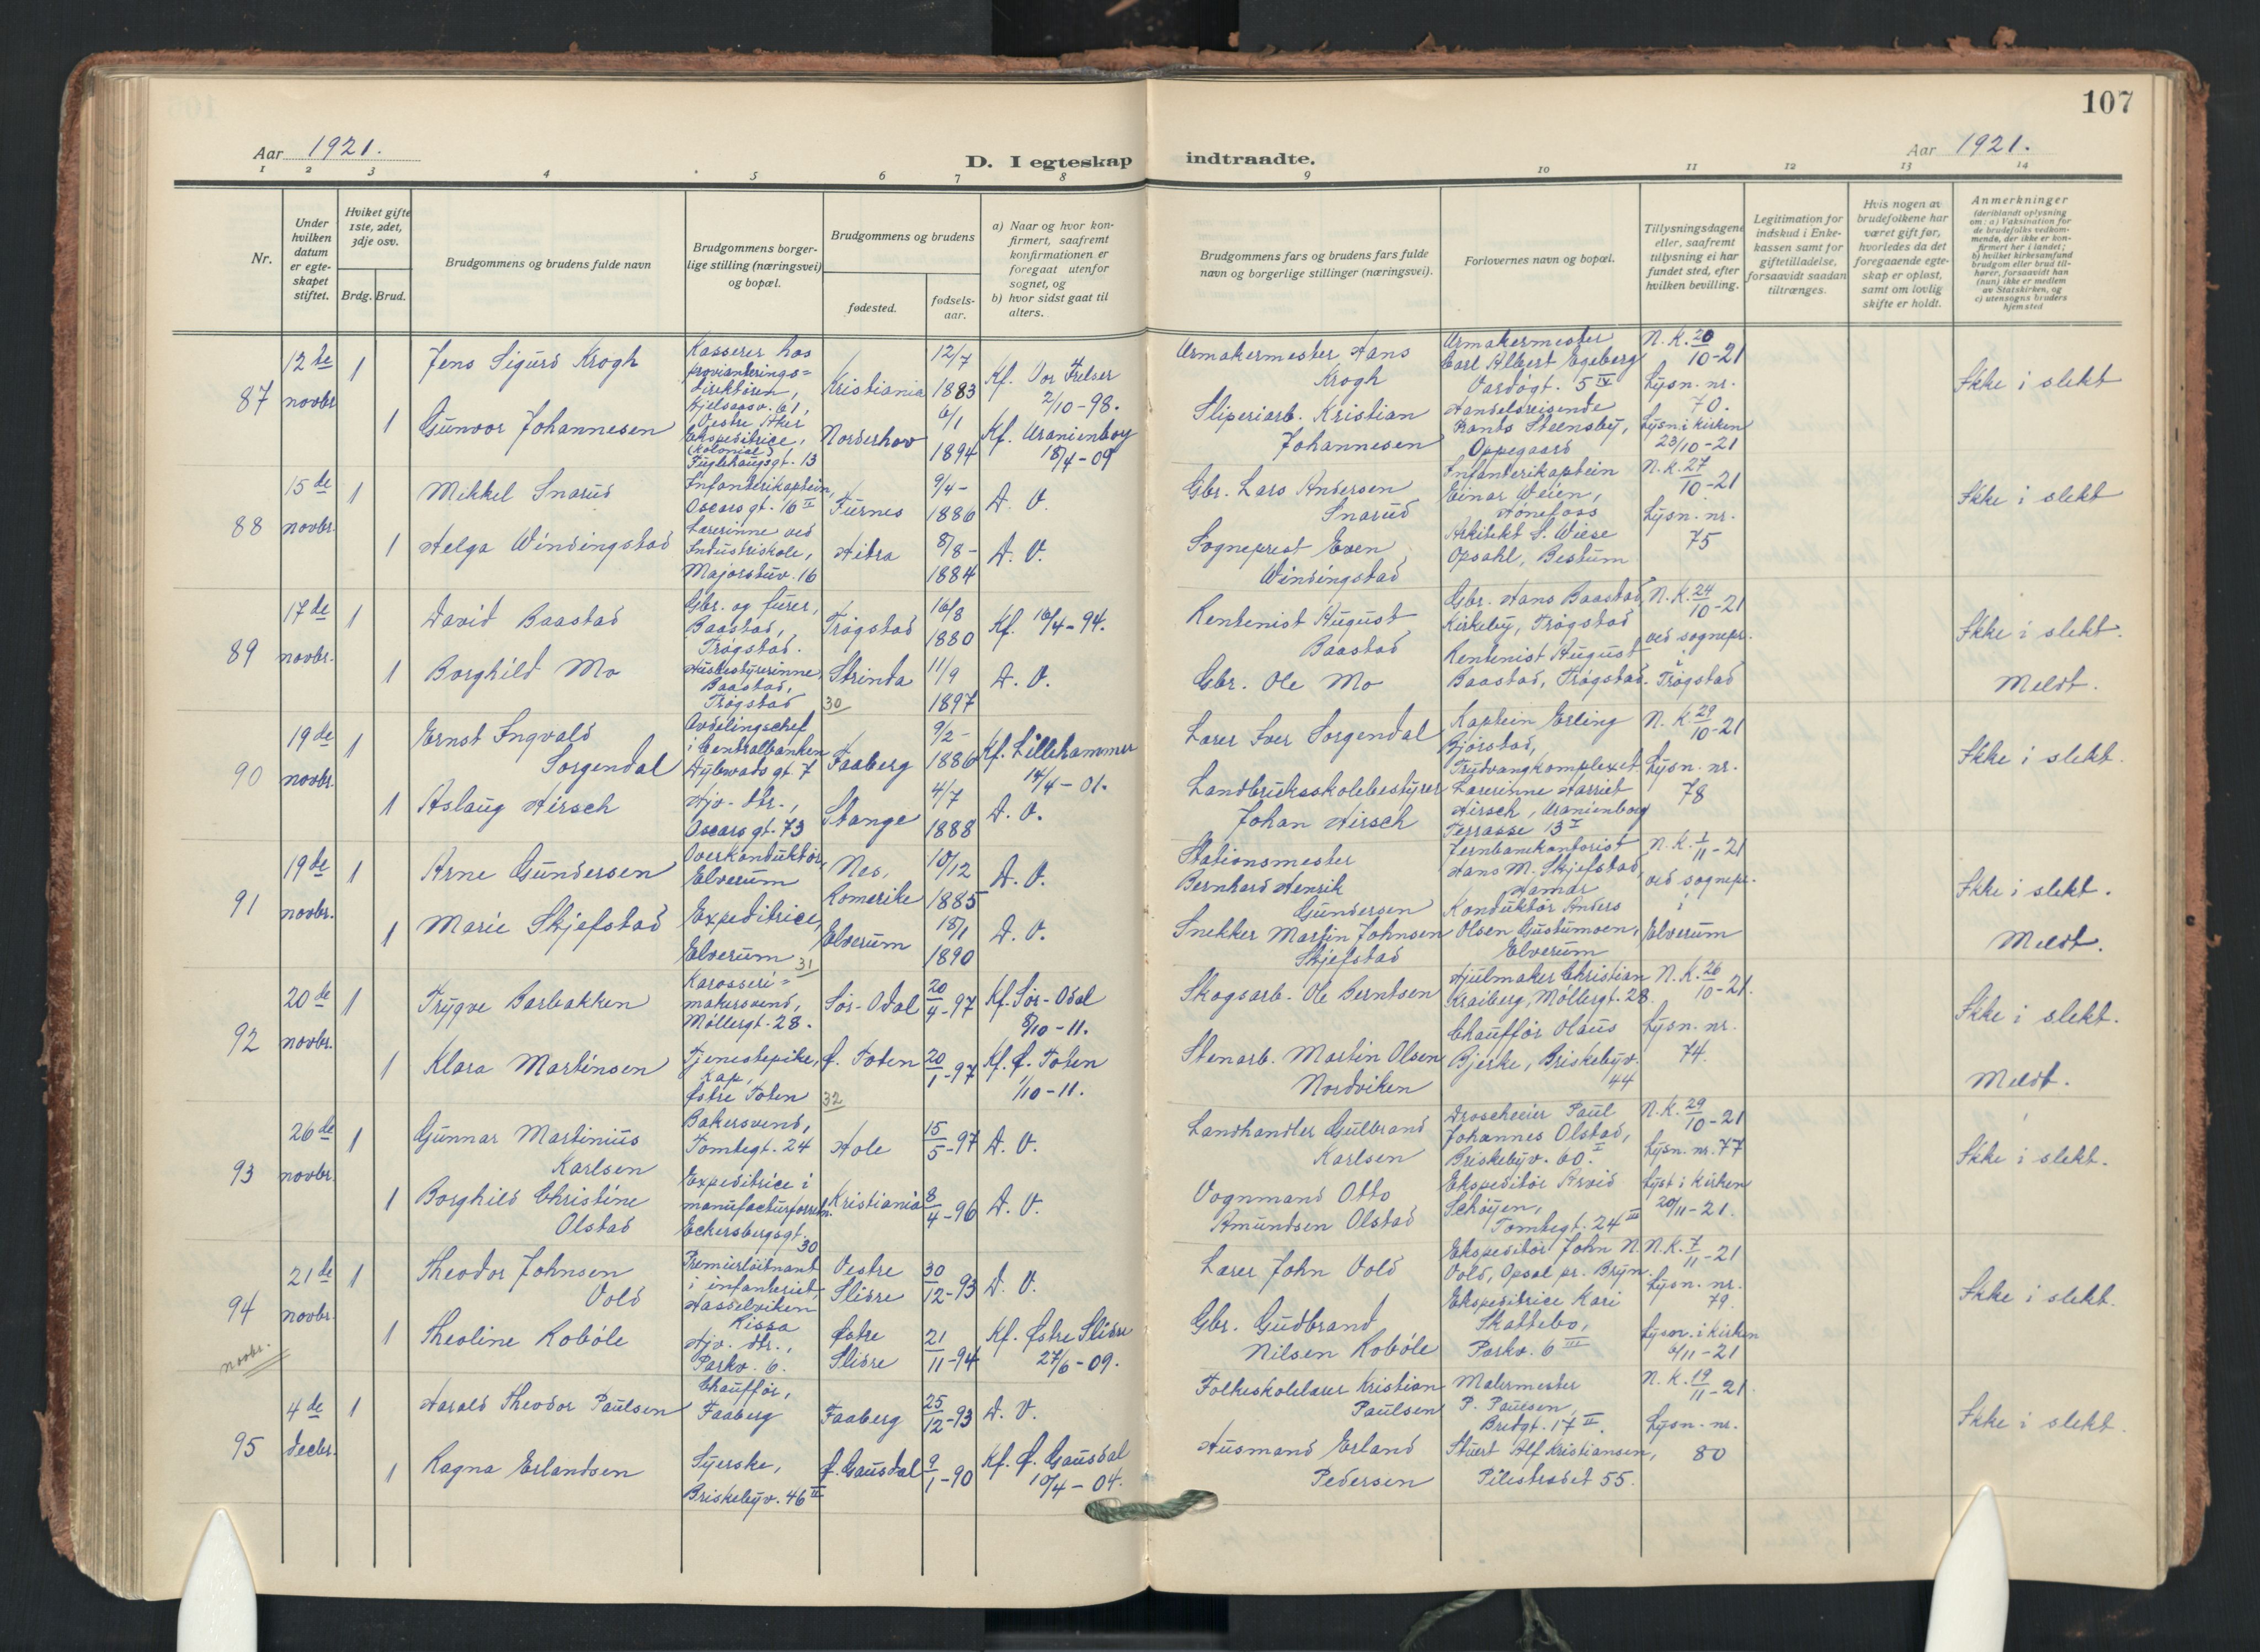 107
Aar 1921.
D. I egteskap indtraadte.
Aar 1921.
1 2 3 4 5 6 7 8 9 10 11 12 13 14
Nr.
Under
hvilken
datum
er egte-
skapet
stiftet.
Hviket gifte
1ste, 2det,
3dje osv.
Brdg. Brud.
Brudgommens og brudens fulde navn
Brudgommens borger-
lige stilling (næringsvei)
og bopæl.
Brudgommens og brudens
fødested.
fødsels-
aar.
a) Naar og hvor kon-
firmert, saafremt
konfirmationen er
foregaat utenfor
sognet, og
b) hvor sidst gaat til
alters.
Brudgommens fars og brudens fars fulde
navn og borgerlige stillinger (næringsvei).
Forlovernes navn og bopæl.
Tillysningsdagene
eller, saafremt
tillysning ei har
fundet sted, efter
hvilken bevilling.
Legitimation for
indskud i Enke-
kassen samt for
giftetilladelse,
forsaavidt saadan
tiltrænges.
Hvis nogen av
brudefolkene har
været gift før,
hvorledes da det
foregaaende egte-
skap er opløst,
samt om lovlig
skifte er holdt.
Anmerkninger
(deriblandt oplysning
om: a) Vaksination for
de brudefolks vedkom-
mende, der ikke er kon-
firmert her i landet;
b) hvilket kirkesamfund
brudgom eller brud til-
hører, forsaavidt han
(hun) ikke er medlem
av Statskirken, og
c) utensogns bruders
hjemsted
87
12de
novbr
1
Jens Sigurd Krogh
Kasserer hos
provianterings=
direktøren,
Kjelsaasv. 61,
Vestre Aker
Kristiania
12/7
1883
Kf. Vor Frelser
2/10-98.
Urmakermester Hans
Krogh
Urmakermester
Carl Albert Egeberg
Vardøgt. 5 IV
N.K. 20/10-21
Lysn. nr.
70.
Ikke i slekt
1
Gunvor Johannesen
Ekspeditrice,
(kolonial)
Fuglehaugsgt. 13
Norderhov
6/1
1894
Kf. Uranienborg
18/4-09
Sliperiarb. Kristian
Johannesen
Handelsreisende
Steensby,
Oppegaard
Lysn. i kirken
23/10-21
88
15de
novbr.
1
Mikkel Snarud
Infanterikaptein,
Oscars gt. 16 II
Furnes
9/4-
1886
D. V.
Gbr. Lars Andersen
Snarud
Infanterikaptein
Einar Weien,
Hønefoss
N.K. 27/10-21
Lysn. nr.
75
Ikke i slekt
1
Helga Windingstad
Lærerinne ved
Industriskole,
Majorstuv. 16
Hitra
8/8-
1884
D. V.
Sogneprest Even
Windingstad
Arkitekt S. Wiese
Opsahl, Bestum
89
17de
novbr.
1
David Baastad
Gbr. og furer,
Baastad,
Trøgstad.
Trøgstad
16/8
1880
Kf. 16/4-94.
Rentenist August
Baastad
Gbr. Hans Baastad,
Kirkeby, Trøgstad
N.K. 24/10-21
ved sognepr.
i
Trøgstad
Ikke i slekt.
1
Borghild Mo
Husbestyrerinne,
Baastad,
Trøgstad
30
Strinda
11/9
1897
D. V.
Gbr. Ole Mo
Rentenist August
Baastad, Trøgstad.
Meldt.
90
19de
novbr.
1
Ernst Ingvald
Sorgendal
Avdelingschef
i Centralbanken
Dybwads gt. 7
Faaberg
9/2-
1886
Kf. Lillehammer
14/4-01.
Lærer Iver Sorgendal
Kaptein Erling
Bjørstad,
Trudvangkomplexet
N.K. 29/10-21
Lysn. nr.
78
Ikke i slekt.
1
Aslaug Hirsch
Hjv. dtr.,
Oscars gt. 73
Stange
4/7
1888
D. V.
Landbruksskolebestyrer
Johan Hirsch
Lærerinne Harriet
Hirsch, Uranienborg
Terrasse 13 I
91
19de
novbr.
1
Arne Gundersen
Overkonduktør,
Elverum
Nes,
Romerike
10/12
1885
D. V.
Stationsmester
Bernhard Henrik
Gundersen
Jernbanekontorist
Hans M. Skjefstad,
Hamar
N.K. 1/11-21
ved sognepr.
i
Elverum
Ikke i slekt.
1
Marie Skjefstad
Expeditrice,
Elverum
31
Elverum
18/1
1890
D. V.
Snekker Martin Johnsen
Skjefstad
Konduktør Anders
Olsen Gustumoen,
Elverum
Meldt.
92
20de
novbr.
1
Trygve Barbakken
Karosseri=
makersvend,
Møllergt. 28.
Sør-Odal
20/4-97
Kf. Sør-Odal
8/10-11.
Skogsarb. Ole Berntsen
Hjulmaker Christian
Kraiberg, Møllergt. 28.
N.K. 26/10-21.
Lysn. nr.
74.
Ikke i slekt.
1
Klara Martinsen
Tjenestepike,
Kap,
Østre Toten
32
Ø. Toten
20/1-97
Kf. Ø. Toten
1/10-11.
Stenarb. Martin Olsen
Nordviken
Chauffør Olaus
Bjerke, Briskebyv.
44
Meldt.
93
26de
novbr.
1
Gunnar Martinius
Karlsen
Bakersvend,
Tomtegt. 24
Hole
15/5-97
D. V.
Landhandler Gulbrand
Karlsen
Droscheeier Paul
Johannes Olstad,
Briskebyv. 60. I
N.K. 29/10-21
Lysn. nr. 77
Ikke i slekt.
1
Borghild Christine
Olstad
Expeditrice i
manufacturforretn.
Eckersbergsgt.
30
Kristiania
8/4-96
D. V.
Vognmand Otto
Amundsen Olstad
Ekspeditør Arvid
Schøyen,
Tomtegt. 24 III
Lyst i kirken
20/11-21.
94
21de
novbr.
1
Theodor Johnsen
Vold
Premierløitnant
i infanteriet,
Hasselviken
Rissa
Vestre
Slidre
30/12-93
D. V.
Lærer John Vold
Ekspeditør John N.
Vold, Opsal pr. Bryn.
N.K. 7/11-21
Lysn. nr.
79.
Ikke i slekt.
1
Theoline Robøle
Hjv. dtr.,
Parkv. 6.
Østre
Slidre
21/11-94
Kf. Østre Slidre
27/6-09.
Gbr. Gudbrand
Nilsen Robøle
Ekspeditrice Kari
Skattebo,
Parkv. 6 III
Lysn. i kirken
6/11-21
novbr.
95
4de
decbr.
1
Harald Theodor Paulsen
Chauffør,
Faaberg
Faaberg
25/12-93
D. V.
Folkeskolelærer Kristian
Paulsen
Malermester
P. Paulsen,
Bredgt. 17 II.
N.K. 19/11-21
Lysn. nr.
80
Ikke i slekt.
1
Ragna Erlandsen
Syerske,
Briskebyv. 46 II
Ø. Gausdal
9/1-90
Kf. Ø. Gausdal
10/4-04.
Husmand Erland
Pedersen
Stuert Alf Kristiansen,
Pilestrædet 55.